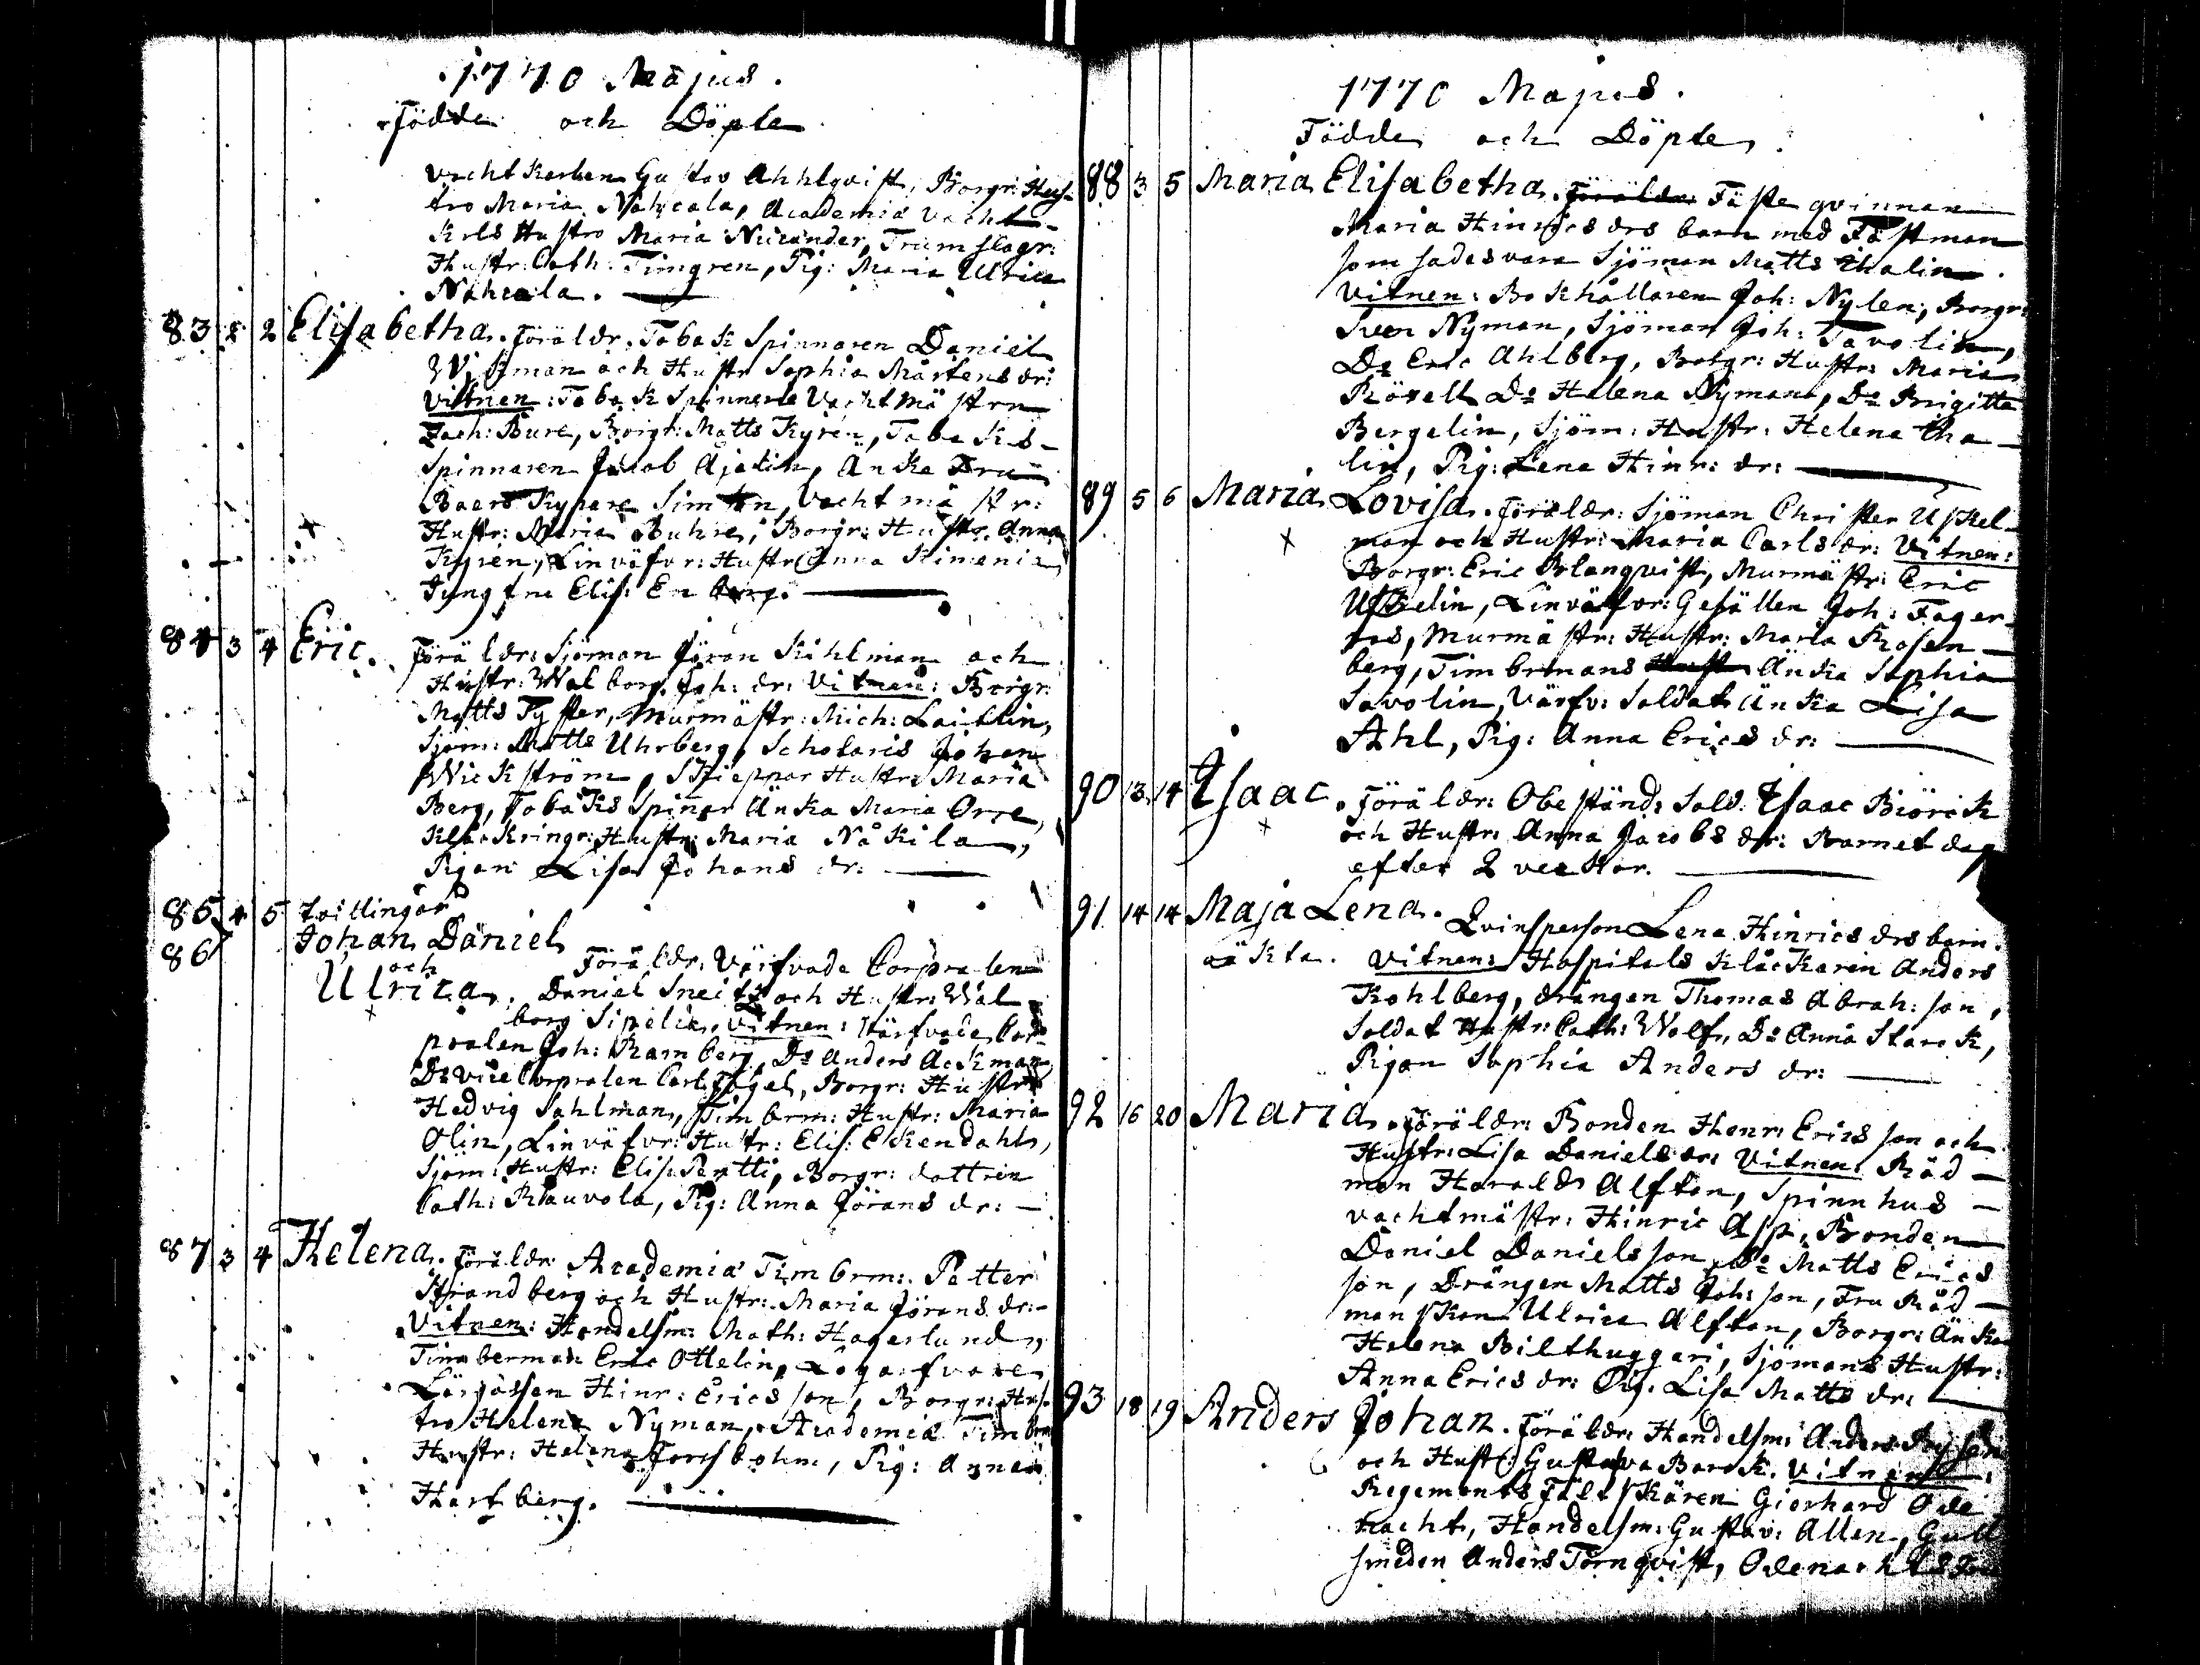 1770 Majus.
Födde och Döpte
vacht Karlen Gustav Ahhlqvist, Borgr: Hus-
tro Maria Nahcala, Academiæ Vacht-
Kls Hustro Maria Nicander, Trumslagr:
Hustr: Cath: Timgren, Pig: Maria Ulrica
Nahcala.
83 2 Elisabetha. Föräldr. Tobak Spinnaren Daniel
Wikman och Hustr Sophia Mårtens dr:
Vittnen: Tobak Spinnerie Vachtmästrn
Zach: Bure, Borgr: Matts Kyren, Tobaks-
Spinnaren Jacob Ajalin, Änka Fru
Baers Kypare Simon, Vachtmästr:
Hustr: Maria Buhre, Borgr: Hustr. Anna
Kyrén, Linväfvr: Hustr Anna Kimenia
Jungfru Elis: Enberg.
84 3 4 Eric. Föräldr: Sjöman Jöran Kihlman och
Hustr: Walborg Joh: dr: Vitnen: Borgr:
Matts Tyster, Murmästr: Mich: Laitlin,
Sjöm: Matts Uhrberg, Scholaris Johan
Wickström, Skieppar Hustr: Maria
Berg, Tobaks Spinnr Änka Maria Orre,
Klåckringr: Hustr: Maria Nåkila,
Pigan Lisa Johans dr:
85 4 5 tvillingar
86 Johan Daniel
och Föräldr. Värfvade Corpralen
Ulrica. Daniel Sneitz och Hustr: Wal
borg Sipelia. Vitnen: Värfvade Cor-
pralen Joh: Ramberg, Do Anders Åckman,
Do vice Corpralen Carl Fogel, Borgr: Hustr:
Hedvig Sahlman, Timbrm: Hustr: Maria
Olin, Linväfvr: Hustr: Elis: Ekendahl,
Sjöm: Hustr: Elis: Pertti, Borgr: dottren
Cath: Rauvola, Pig: Anna Jörans dr: —
87 3 4 Helena. Föräldr Academiæ Timbrm: Petter
Strandberg och Hustr: Maria Jörans dr:
Vitnen: Handelsm: Math: Hagerlund,
Timberman Eric Ottelin, Logarfvare
Lärgåssen Hinr: Ericsson, Borgr: Hus-
tro Helena Nyman, Academiæ Timbrm
Hustr: Helena Forsbohm, Pig: Anna
Hartberg.
1770 Majus.
Födde och Döpte
88 3 5 Maria Elisabetha. Föräldr: Fäste qvinnan
Maria Hinrics drs barn med Fästman
som sades vara Sjöman Matts thalin.
Vitnen: Bokhållaren Joh: Nylen, Borgr:
Sven Nyman, Sjöman Joh: Tavolin,
Do Eric Ahlberg, Borgr: Hustr: Maria
Rösell Do Helena Nyman, Do Brigitta
Bergelin, Sjöm: Hustr: Helena tha-
lin, Pig: Lena Hinr: dr:
89 5 6 Maria Lovisa. Föräldr: Sjöman Christer Uskel-
man och Hustr: Maria Carls dr: Vitnen:
Borgr: Eric Blanqvist, Murmästr: Eric
Uskelin, Linväfvr: Gesällen Joh: Fager-
ros, Murmästr: Hustr: Maria Rosen-
berg, Timbrmans Hustr Änka Sophia
Savolin, Värfv: Soldat Änka Lisa
Ahl, Pig: Anna Erics dr:
90 13 14 Isaac. Föräldr: Obeständ: Sold: Isaac Biörck
och Hustr: Anna Jacobs dr: Barnet dog
efter 2 veckor.
91 14 14 Maja Lena. Qvinsperson Lena Hinrics drs barn.
oäkta. Vitnen: Hospitals Klåckaren Anders
Kohlberg, drängen Thomas Abrah: son,
Soldat Hustr: Cath: Wolf, Do Anna Starck,
Pigan Sophia Anders dr:
92 16 20 Maria. Föräldr: Bonden Henr: Erics son och
Hustr: Lisa Daniels dr: Vitnen: Råd-
man Harald Alftan, Spinnhus -
vachtmästr: Hinric Asp, Bonden
Daniel Danielsson, Do Matts Erics
son, Drängen Matts Joh: son, Fru Råd-
manskan Ulrica Alftan, Borgr: Änka
Helena Bilthuggari, Sjömans Hustr:
Anna Erics dr: Pig: Lisa Matts dr:
93 18 19 Anders Johan. Föräldr: Handelsm: Anders
och Hustr: Gustava Barck. Vitnen:
Regements Fältskären Gierhard Ode
nacht, Handelsm: Gustav: Allen, Gull
smeden Anders Törnqvist, Odenachts Fru